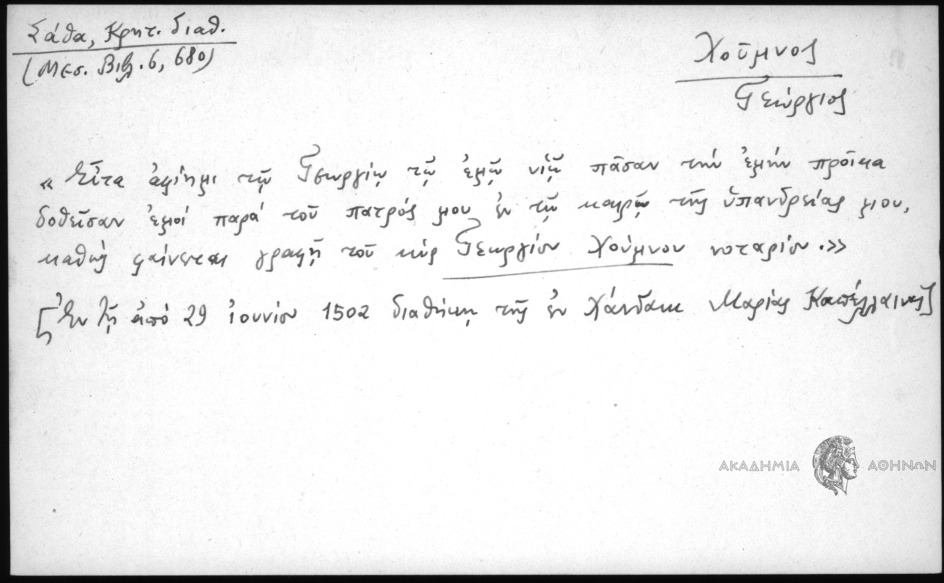 Σάθα, Κρητ. διαθ.
(Μεσ. Βιβ. 6, 680)
Χοῦμνος
Γεώργιος
« Εἶτα ἀφίημι τῷ Γεωργίῳ τῷ ἐμῷ υἱῷ πᾶσαν τὴν ἐμὴν προῖκα
δοθεῖσαν ἐμοὶ παρὰ τοῦ πατρός μου ἐν τῷ καιρῷ τῆς ὑπανδρείας μου,
καθὼς φαίνεται γραφῇ τοῦ κὺρ Γεωργίου Χούμνου νοταρίου.»
[Ἐν τῇ ἀπὸ 29 ἰουνίου 1502 διαθήκῃ τῆς ἐν Χάνδακι Μαρίας Καπέλλαινας]
ΑΚΑΔΗΜΙΑ ΑΘΗΝΩΝ